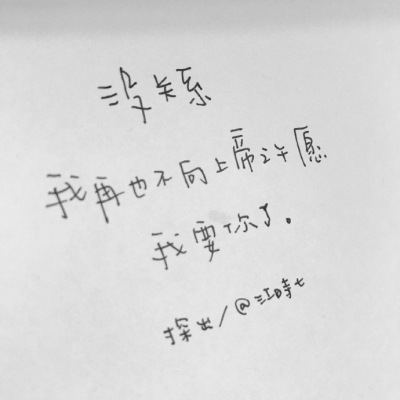 没关系
我再也不向上帝许愿
我要你了。
探出/@江時七